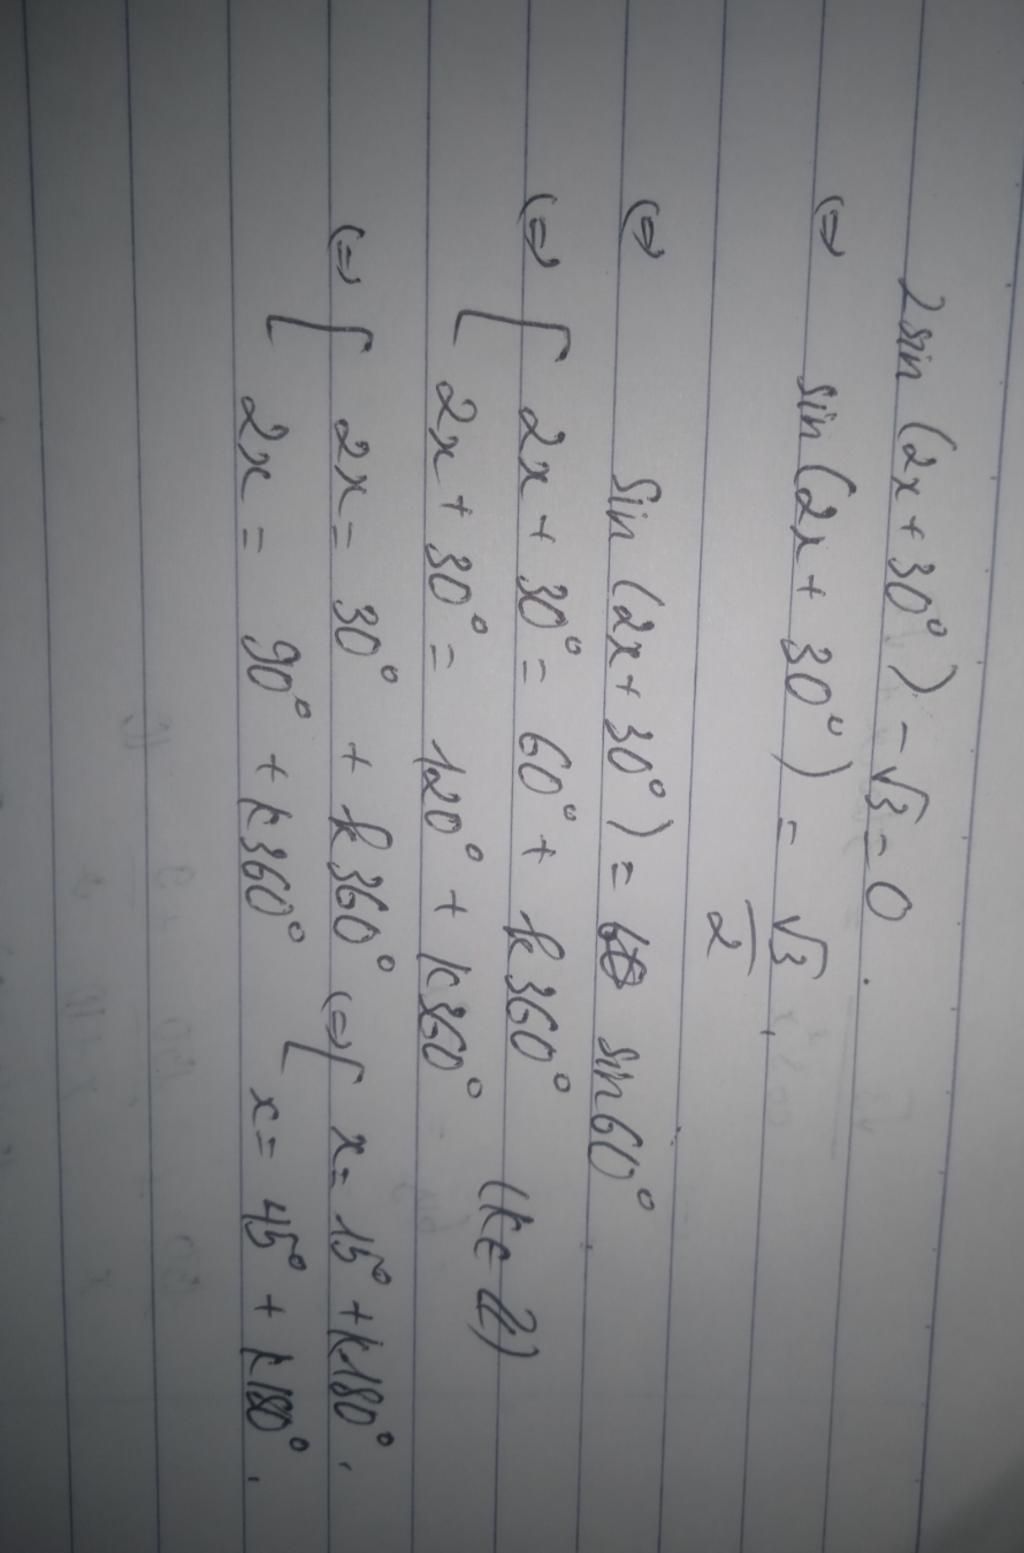 2sin (2x + 30°) - √3 = 0.
(=) sin (2x + 30°) = √3/2.
(=) sin (2x + 30°) = sin60°
(=) [ 2x + 30° = 60° + k360°
2x + 30° = 120° + k360° (k ∈ Z)
(=) [ 2x = 30° + k360° (=) [ x = 15° + k180°.
2x = 90° + k360° x = 45° + k180°.